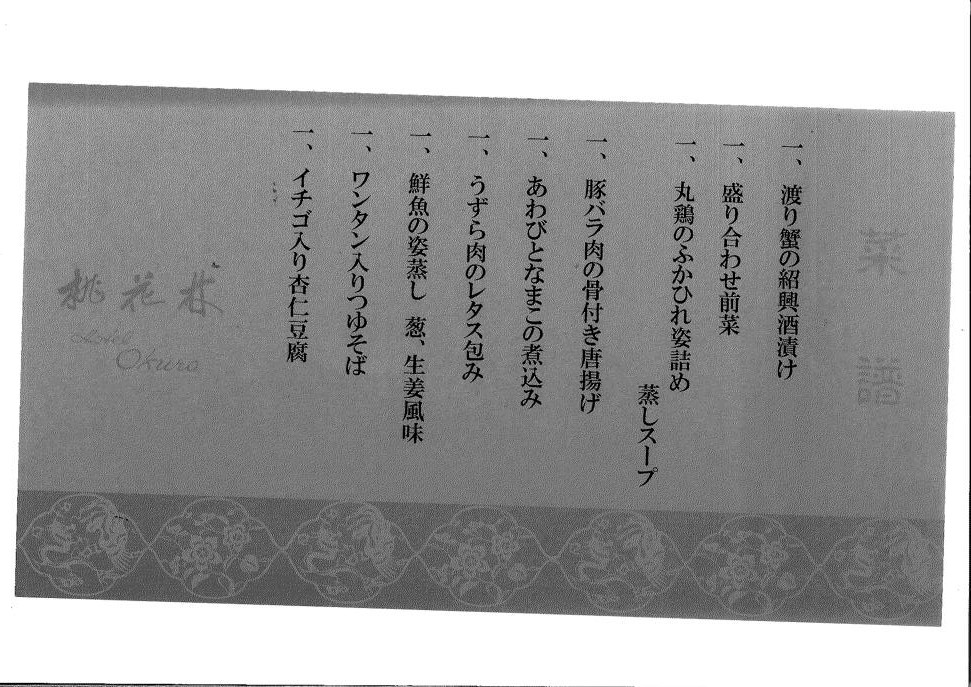 菜譜
一、渡り蟹の紹興酒漬け
一、盛り合わせ前菜
一、丸鶏のふかひれ姿詰め
蒸しスープ
一、豚バラ肉の骨付き唐揚げ
一、あわびとなまこの煮込み
一、うずら肉のレタス包み
一、鮮魚の姿蒸し 葱、生姜風味
一、ワンタン入りつゆそば
一、イチゴ入り杏仁豆腐
桃花林
Hotel
Okura